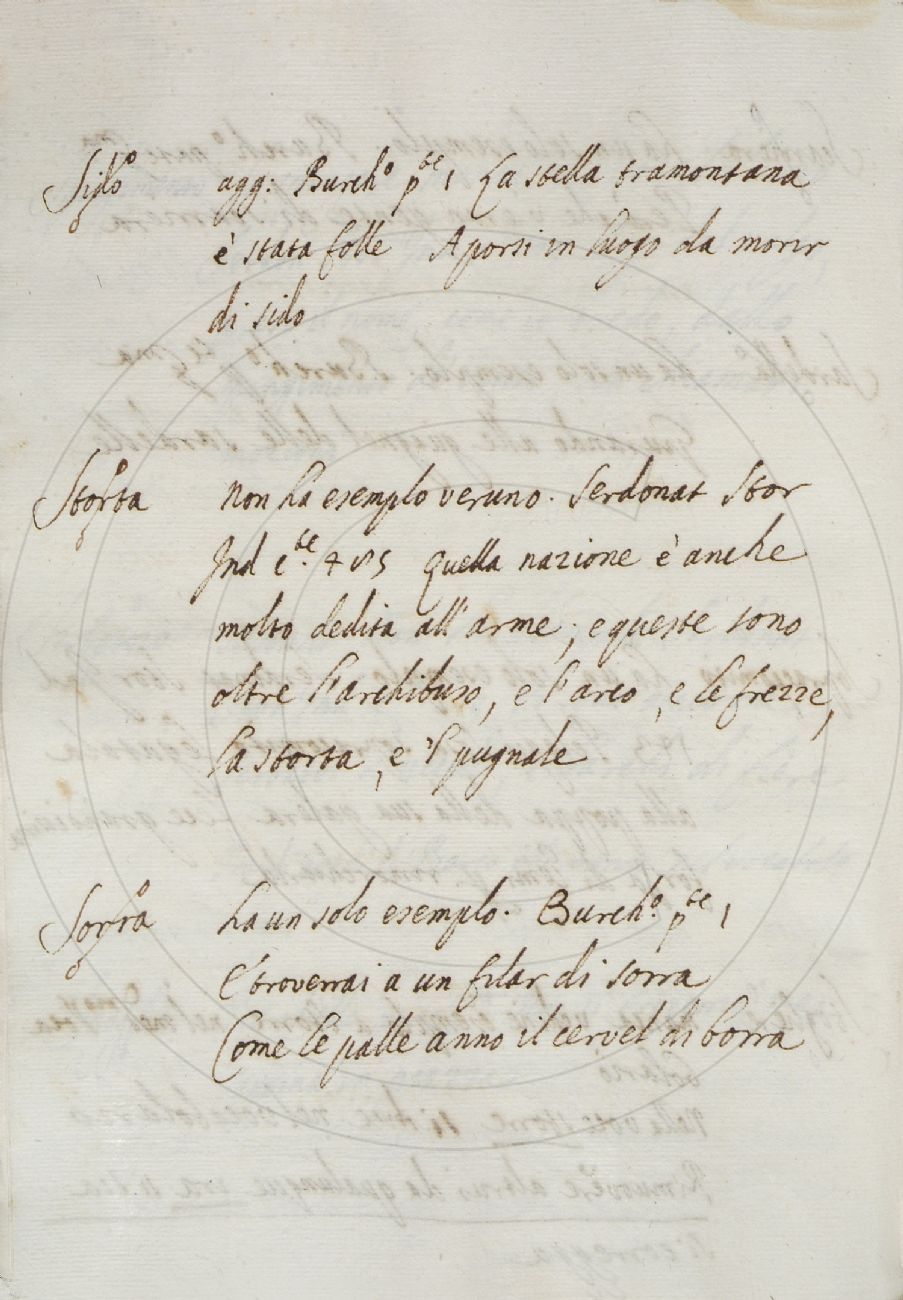 Sido agg: Burch.º p.te 1 La stella tramontana
è stata folle A porsi in luogo da morir
di sido
Storta non ha esemplo veruno. Serdonat Stor
Ind c.te 485 Quella nazione è anche
molto dedita all'arme; e queste sono
oltre l'archibuso, e l'arco, e le frezze,
la storta, e 'l pugnale
Sorra ha un solo esemplo. Burch.º p.te 1
E troverrai a un filar di sorra
Come le palle anno il cervel di borra